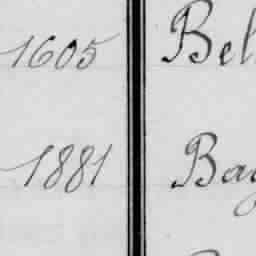 1605 Bel
1881 Bay